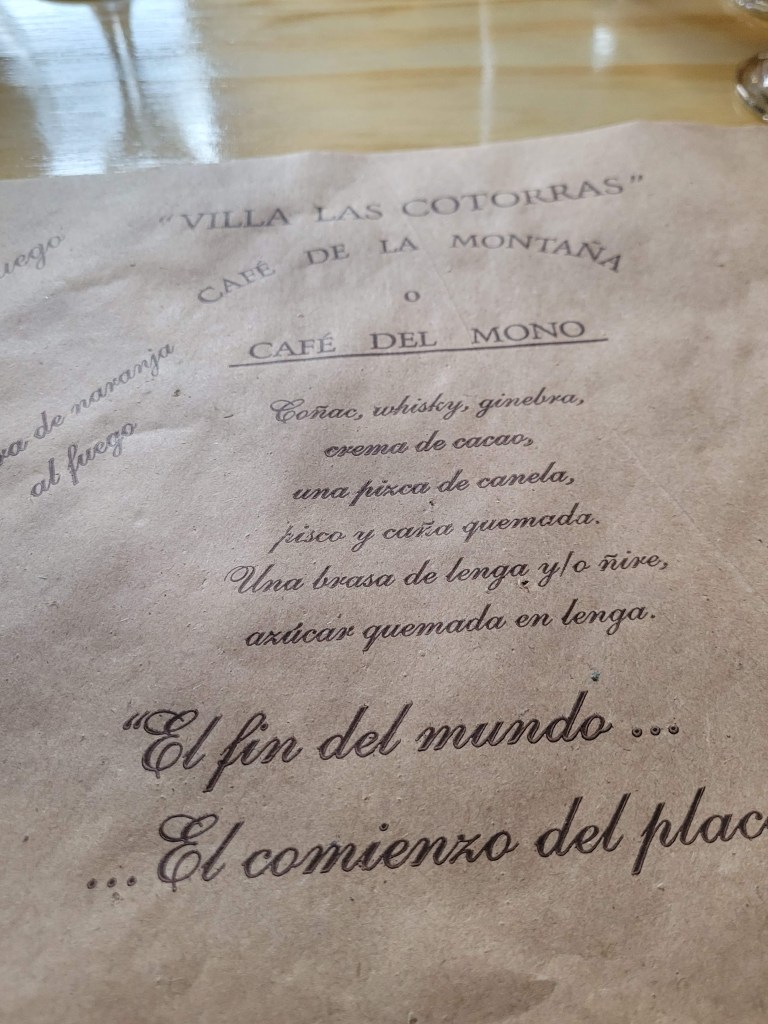 "VILLA LAS COTORRAS"
CAFÉ DE LA MONTAÑA
o
CAFÉ DEL MONO
Coñac, whisky, ginebra,
crema de cacao,
una pizca de canela,
pisco y caña quemada.
Una brasa de lenga y/o ñire,
azúcar quemada en lenga.
"El fin del mundo ...
... El comienzo del
de naranja
al fuego